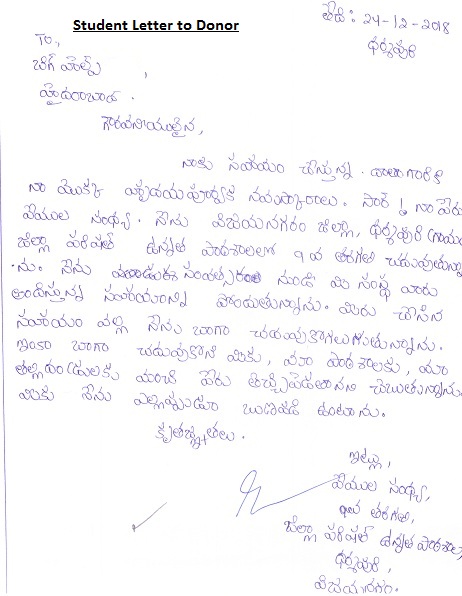 Student Letter to Donor
తేది: 24-12-2018
ధర్మపురి
To.,
బిగ్ హెల్ప్ ,
హైదరాబాద్ .
గౌరవనీయులైన,
నాకు సహాయం చేస్తున్న దాతగారికి
నా యొక్క హృదయపూర్వక నమస్కారాలు. సార్ ! నా పేరు
వేముల సంధ్య. నేను విజయనగరం జిల్లా, ధర్మపురి గ్రామం
జిల్లా పరిషత్ ఉన్నత పాఠశాలలో 9వ తరగతి చదువుతున్నా
ను. నేను సంవత్సరం నుండి మీ సంస్థ వారు
అందిస్తున్న సహాయాన్ని పొందుతున్నాను. మీరు చేసిన
సహాయం వల్ల నేను బాగా చదువుకొగలుగుతున్నాను.
ఇంకా బాగా చదువుకొని మీకు, మా పాఠశాలకు, మా
తల్లిదండ్రులకు మంచి పేరు తెచ్చిపెడతానని చెబుతున్నాను.
మీకు నేను ఎల్లప్పుడూ ఋణపడి ఉంటాను.
కృతజ్ఞతలు.
ఇట్లు,
వేముల సంధ్య,
9వ తరగతి,
జిల్లా పరిషత్ ఉన్నత పాఠశాల,
ధర్మపురి,
విజయనగరం.